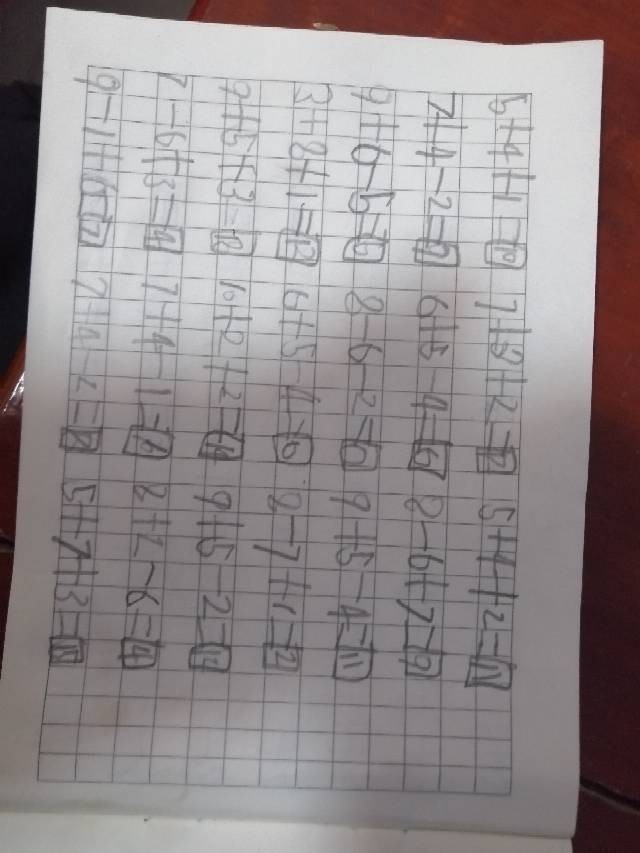 5+4+1=10 7+3+2=12 5+4+2=11
7+4-2= 6+5-4= 8-6+7=9
9+6-5=10 8-6-2=0 9+5-4=11
3+8+1=12 6+5-4= 8-7+1=2
9+5+3= 10+2+2=14 9+5-2=12
7-6+3=4 7+4-1=10 8+2-6=4
9-1+6= 7+4-2= 5+7+3=15